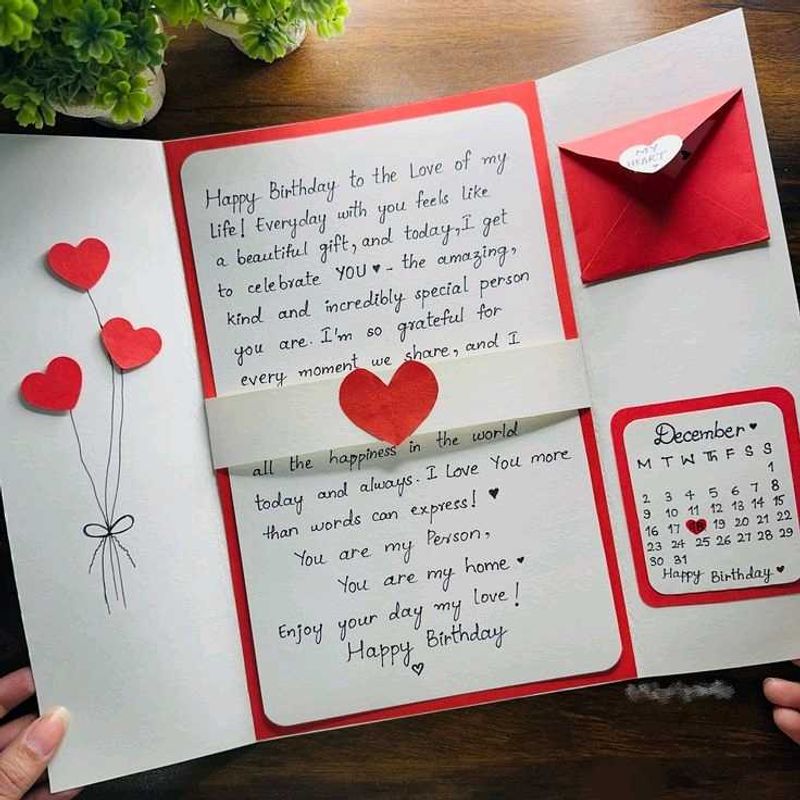 Happy Birthday to the Love of my
Life! Everyday with you feels like
a beautiful gift, and today, I get
to celebrate YOU ♥ - the amazing,
kind and incredibly special person
you are. I'm so grateful for
every moment we share, and I
all the happiness in the world
today and always. I Love You more
than words can express! ♥
You are my Person,
You are my home ♥
Enjoy your day my love!
Happy Birthday
♡
MY
HEART
December ♥
M T W Th F S S
1
2 3 4 5 6 7 8
9 10 11 12 13 14 15
16 17 18 19 20 21 22
23 24 25 26 27 28 29
30 31
Happy Birthday ♥